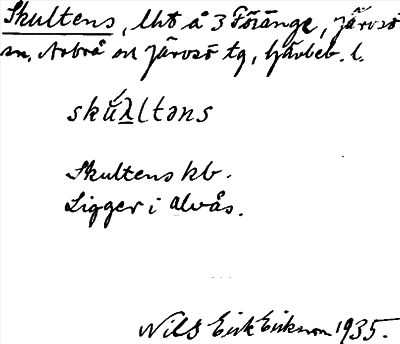 Skultens, lht å 3 Föränge, Järvsö
sn, Arbrå och Järvsö tg, Gävleb. l.
skúλltəns
Skultens kb.
Ligger i Alvås.
Nils Erik Eriksson 1935.